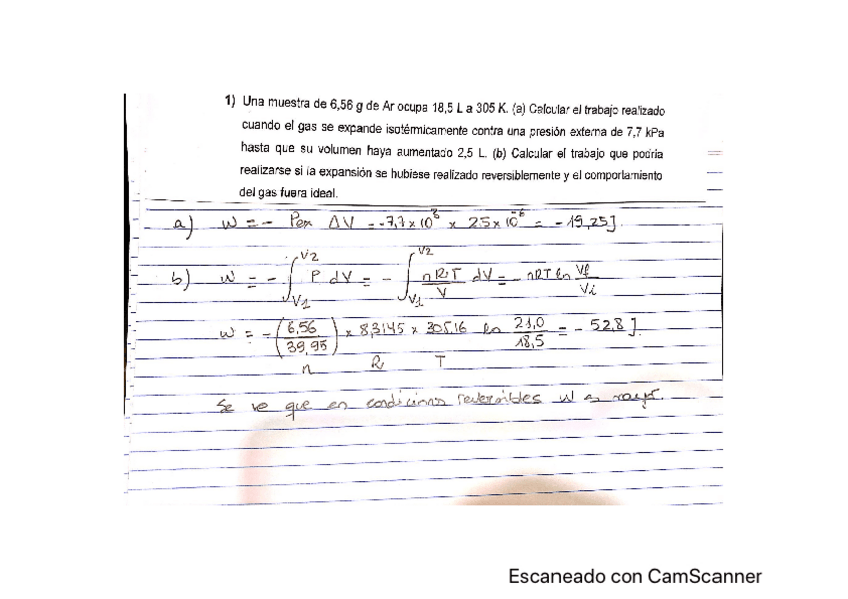 1) Una muestra de 6,56 g de Ar ocupa 18,5 L a 305 K. (a) Calcular el trabajo realizado
cuando el gas se expande isotérmicamente contra una presión externa de 7,7 kPa
hasta que su volumen haya aumentado 2,5 L. (b) Calcular el trabajo que podria
realizarse si la expansión se hubiese realizado reversiblemente y el comportamiento
del gas fuera ideal.
a) W = - Pex ΔV = -7,7 x 10³ x 2,5 x 10⁻³ = - 19,25 J
b) W = - ∫V1 V2 P dV = - ∫V1 V2 nRT/V dV = - nRT ln Vf/Vi
W = - (6,56/39,95) x 8,3145 x 305,16 ln 21,0/18,5 = - 52,8 J
n R T
Se ve que en condiciones reversibles W es mayor.
Escaneado con CamScanner